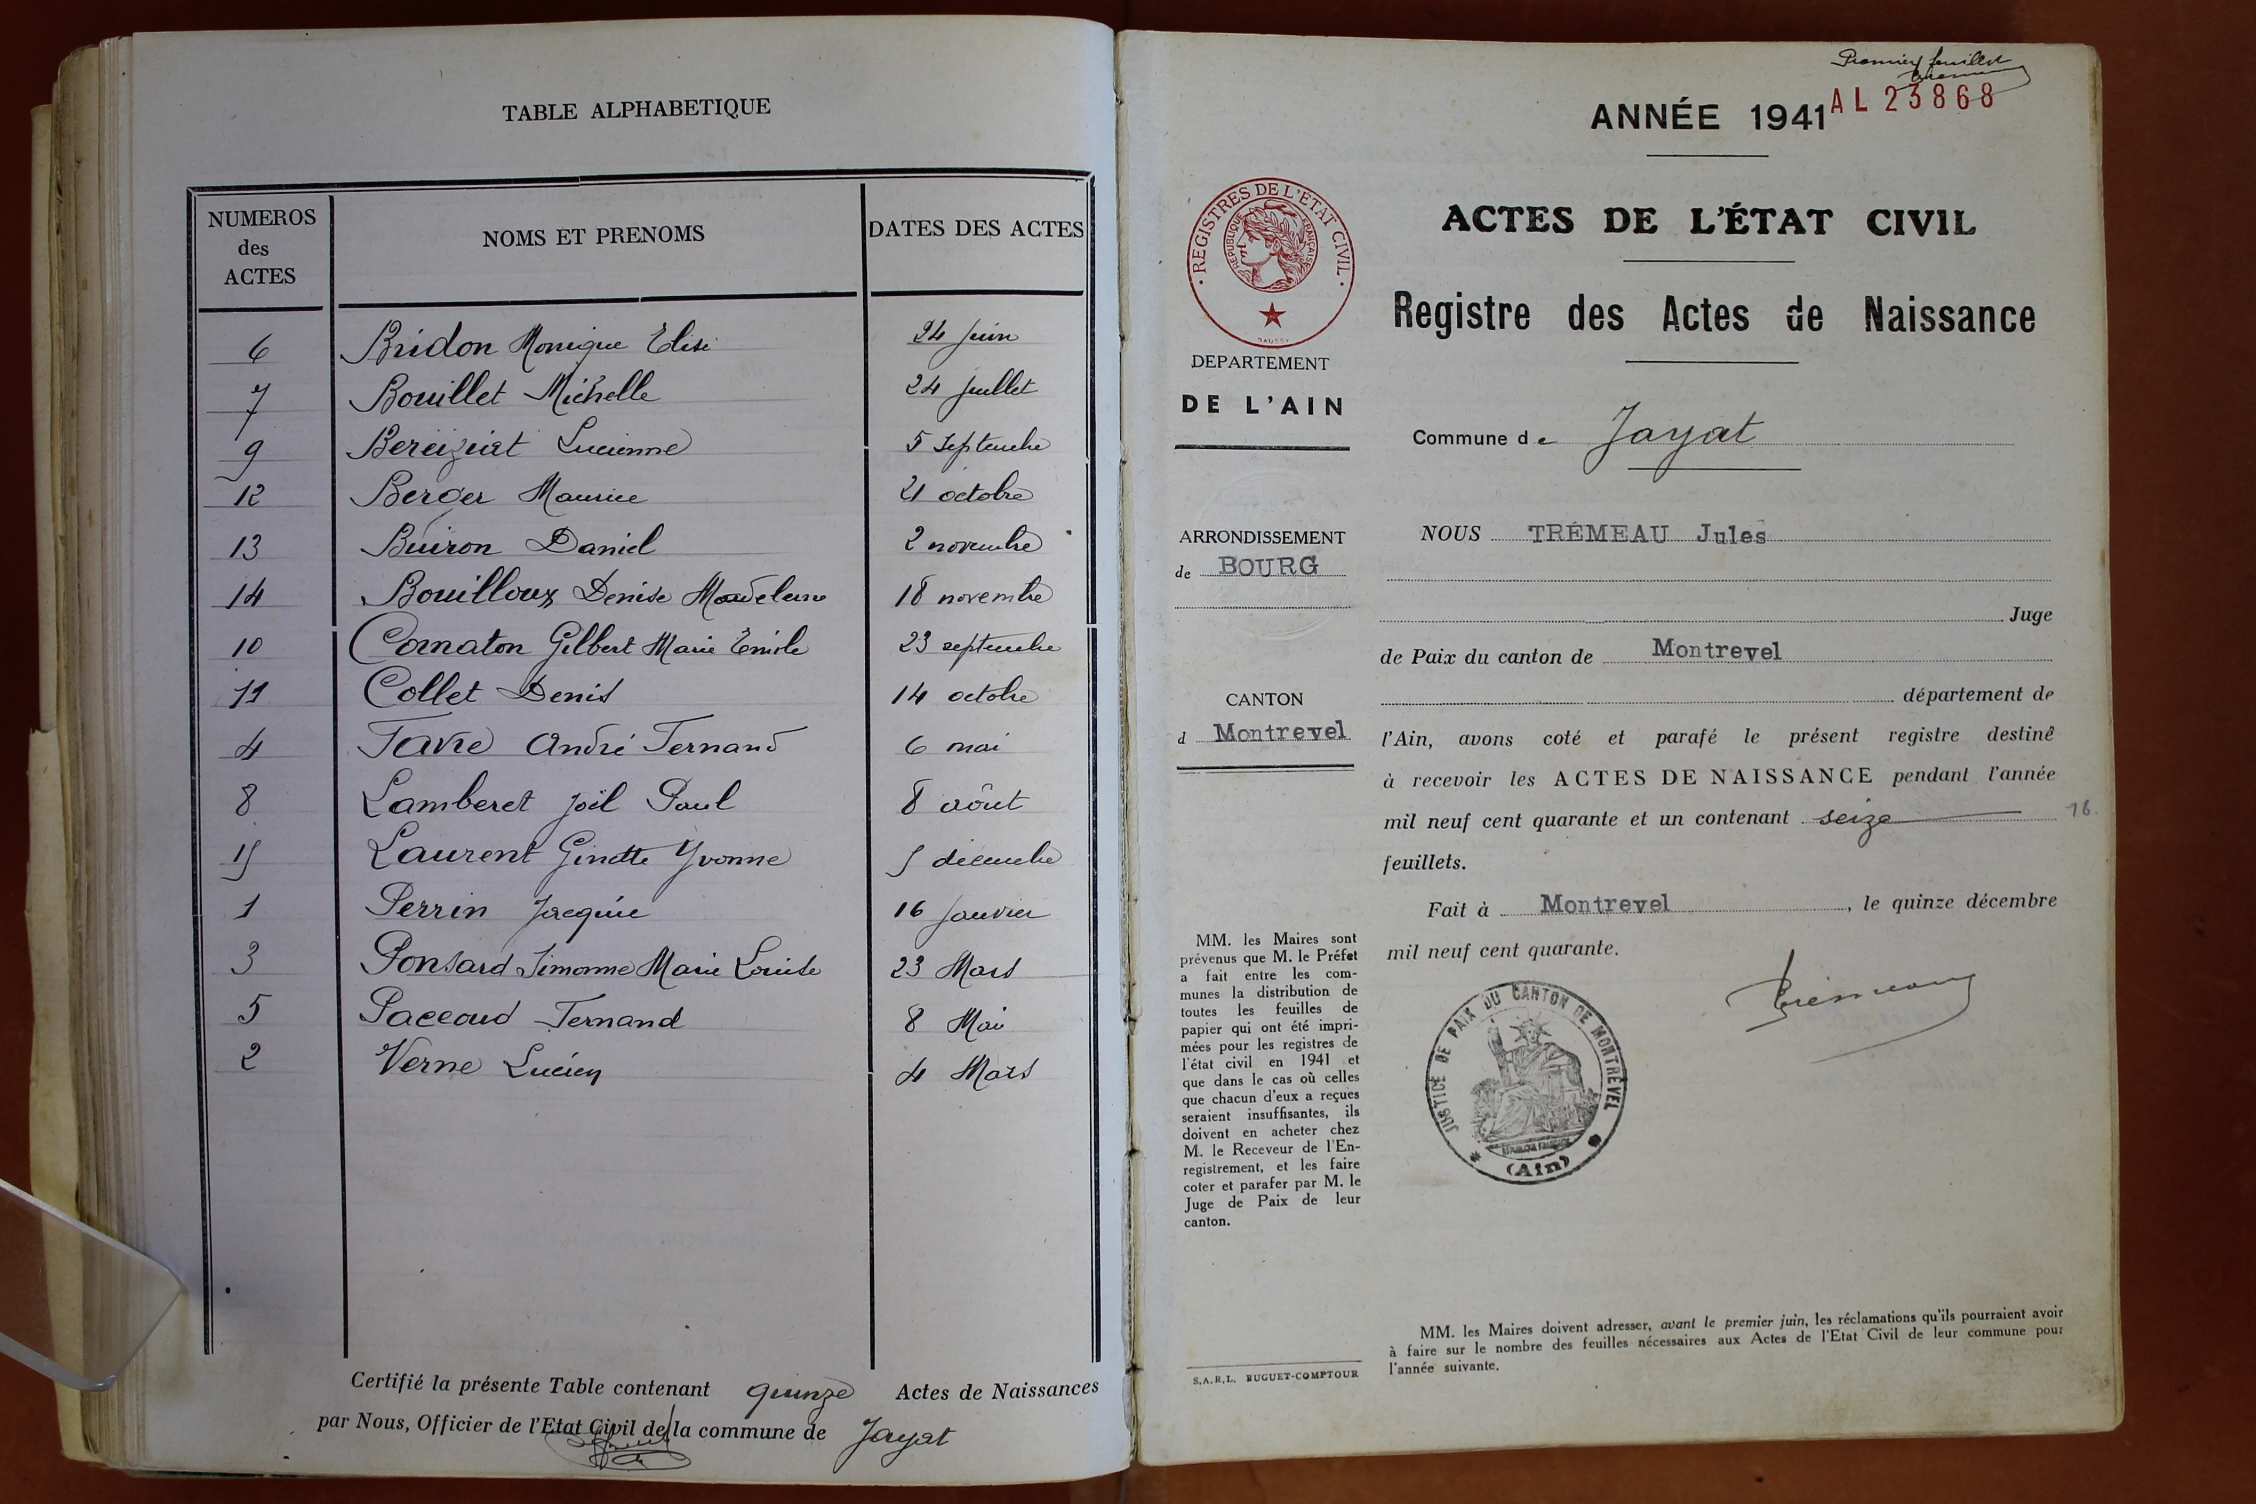 TABLE ALPHABETIQUE
NUMEROS des ACTES | NOMS ET PRENOMS | DATES DES ACTES
6 Bridon Monique Elise 24 Juin
7 Bouillet Michelle 24 Juillet
9 Béréiziat Lucienne 5 Septembre
12 Berger Maurice 21 octobre
13 Buiron Daniel 2 novembre
14 Bouilloux Denise Madeleine 18 novembre
10 Cornaton Gilbert Marie Emile 23 septembre
11 Collet Denis 14 octobre
4 Favre André Fernand 6 mai
8 Lamberet Joël Paul 8 aôut
15 Laurent Ginette Yvonne 5 décembre
1 Perrin Jacquie 16 Janvier
3 Ponsard Simonne Marie Louise 23 Mars
5 Paccoud Fernand 8 Mai
2 Verne Lucien 4 Mars
Certifié la présente Table contenant quinze Actes de Naissances
par Nous, Officier de l'Etat Civil de la commune de Jayat
Premier feuillet
AL 23868
ANNÉE 1941
ACTES DE L'ÉTAT CIVIL
Registre des Actes de Naissance
· REGISTRES DE L'ETAT CIVIL ·
REPUBLIQUE FRANÇAISE
DEPARTEMENT
DE L'AIN
Commune de Jayat
ARRONDISSEMENT
de BOURG
CANTON
d Montrevel
NOUS TRÉMEAU Jules
Juge
de Paix du canton de Montrevel
département de
l'Ain, avons coté et parafé le présent registre destiné
à recevoir les ACTES DE NAISSANCE pendant l'année
mil neuf cent quarante et un contenant seize 16
feuillets.
Fait à Montrevel, le quinze décembre
mil neuf cent quarante.
JUSTICE DE PAIX DU CANTON DE MONTREVEL
(Ain)
MM. les Maires sont
prévenus que M. le Préfet
a fait entre les com-
munes la distribution de
toutes les feuilles de
papier qui ont été impri-
mées pour les registres de
l'état civil en 1941 et
que dans le cas où celles
que chacun d'eux a reçues
seraient insuffisantes, ils
doivent en acheter chez
M. le Receveur de l'En-
registrement, et les faire
coter et parafer par M. le
Juge de Paix de leur
canton.
S.A.R.L. BUGUET-COMPTOUR
MM. les Maires doivent adresser, avant le premier juin, les réclamations qu'ils pourraient avoir
à faire sur le nombre des feuilles nécessaires aux Actes de l'Etat Civil de leur commune pour
l'année suivante.